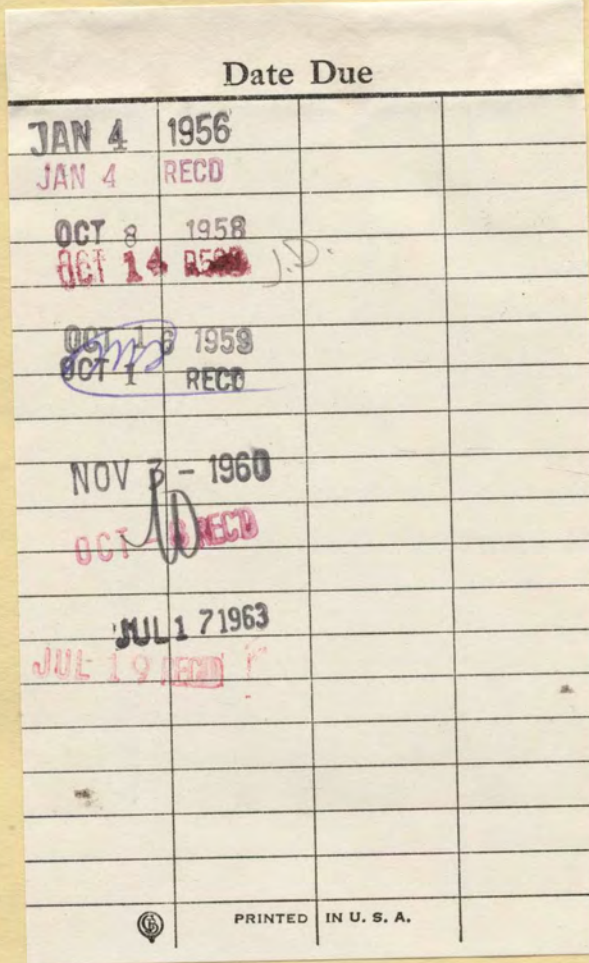 Date Due
JAN 4 1956
JAN 4 RECD
OCT 8 1958
OCT 14 J.D.
OCT 16 1959
OCT 1 RECD
NOV 3 - 1960
OCT RECD
JUL 17 1963
JUL 19 RECD
PRINTED IN U. S. A.